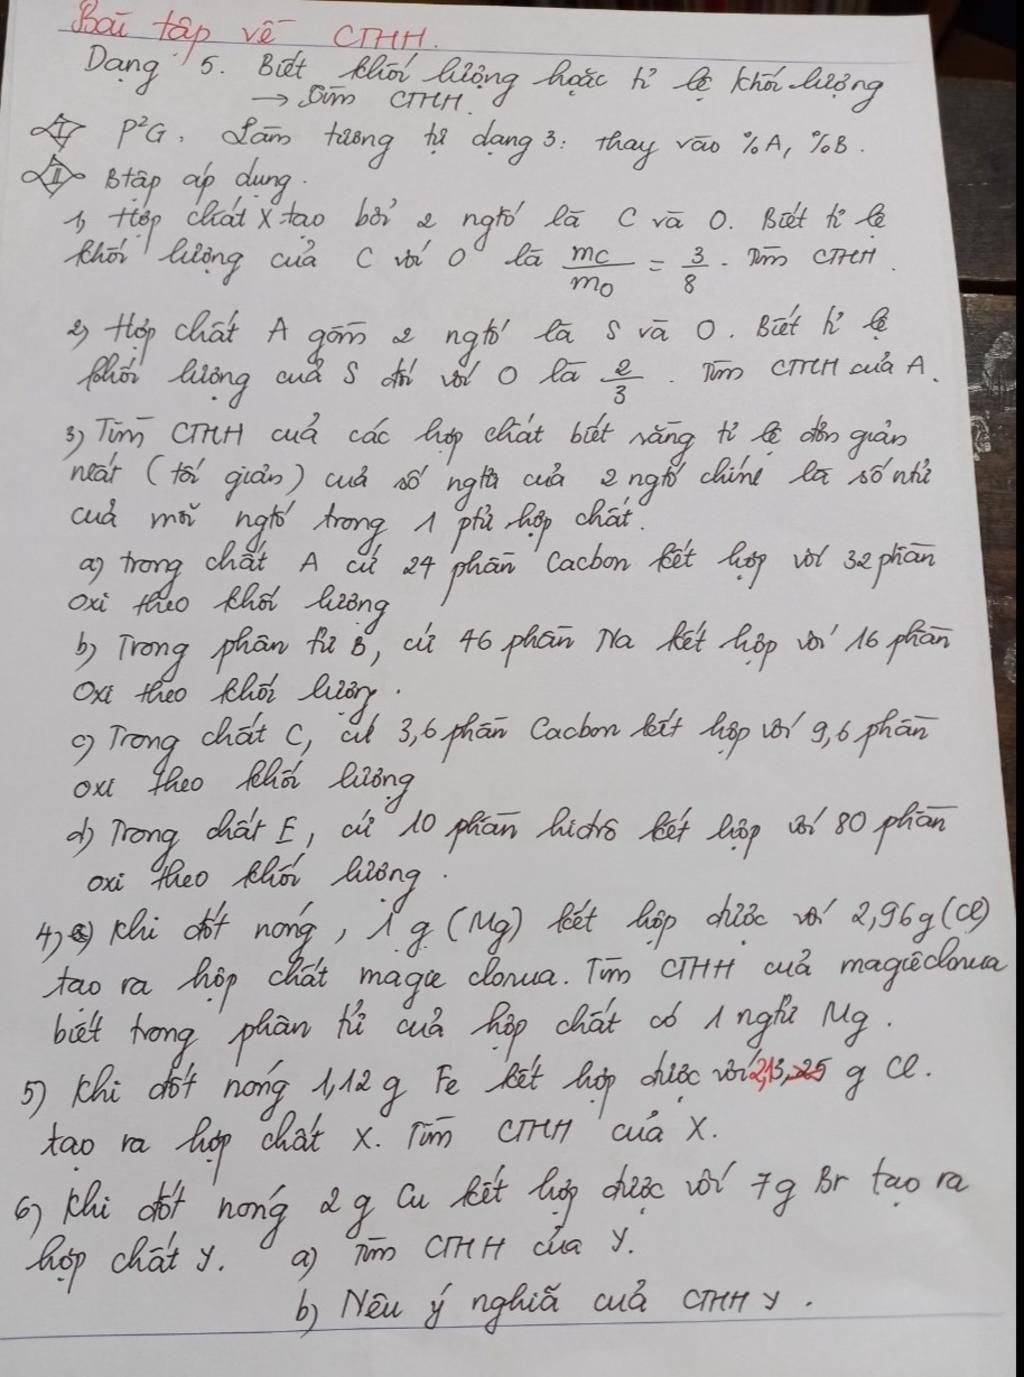 Bài tập về CTHH.
Dạng 5. Biết khối lượng hoặc tỉ lệ khối lượng
→ Tìm CTHH.
I P²G. Làm tương tự dạng 3: thay vào %A, %B.
II Btập áp dụng.
1) Hợp chất X tạo bởi 2 ngtố là C và O. Biết tỉ lệ
khối lượng của C với O là mC/mO = 3/8. Tìm CTHH.
2) Hợp chất A gồm 2 ngtố là S và O. Biết tỉ lệ
khối lượng của S đối với O là 2/3. Tìm CTHH của A.
3) Tìm CTHH của các hợp chất biết rằng tỉ lệ đơn giản
nhất (tối giản) của số ngtử của 2 ngtố chính là số ntử
của mỗi ngtố trong 1 ptử hợp chất.
a) trong chất A cứ 24 phần Cacbon kết hợp với 32 phần
oxi theo khối lượng
b) Trong phân tử B, cứ 46 phần Na kết hợp với 16 phần
Oxi theo khối lượng.
c) Trong chất C, cứ 3,6 phần Cacbon kết hợp với 9,6 phần
oxi theo khối lượng
d) Trong chất E, cứ 10 phần hiđrô kết hợp với 80 phần
oxi theo khối lượng.
4) Khi đốt nóng, 1 g (Mg) kết hợp được với 2,96g (Cl)
tạo ra hợp chất magie clorua. Tìm CTHH của magieclorua
biết trong phân tử của hợp chất có 1 ngtử Mg.
5) Khi đốt nóng 1,12 g Fe kết hợp được với 2,13 g Cl.
tạo ra hợp chất X. Tìm CTHH của X.
6) Khi đốt nóng 2 g Cu kết hợp được với 7g Br tạo ra
hợp chất Y. a) Tìm CTHH của Y.
b) Nêu ý nghĩa của CTHH Y.